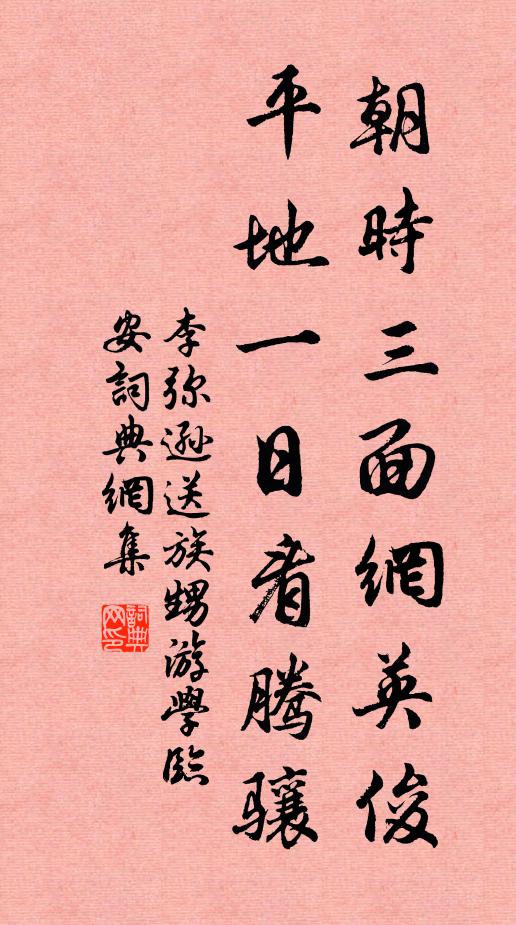 朝時三面網英俊
平地一日看騰驤
李弥遜送族甥游學臨
安詞典網集
詞典
网印